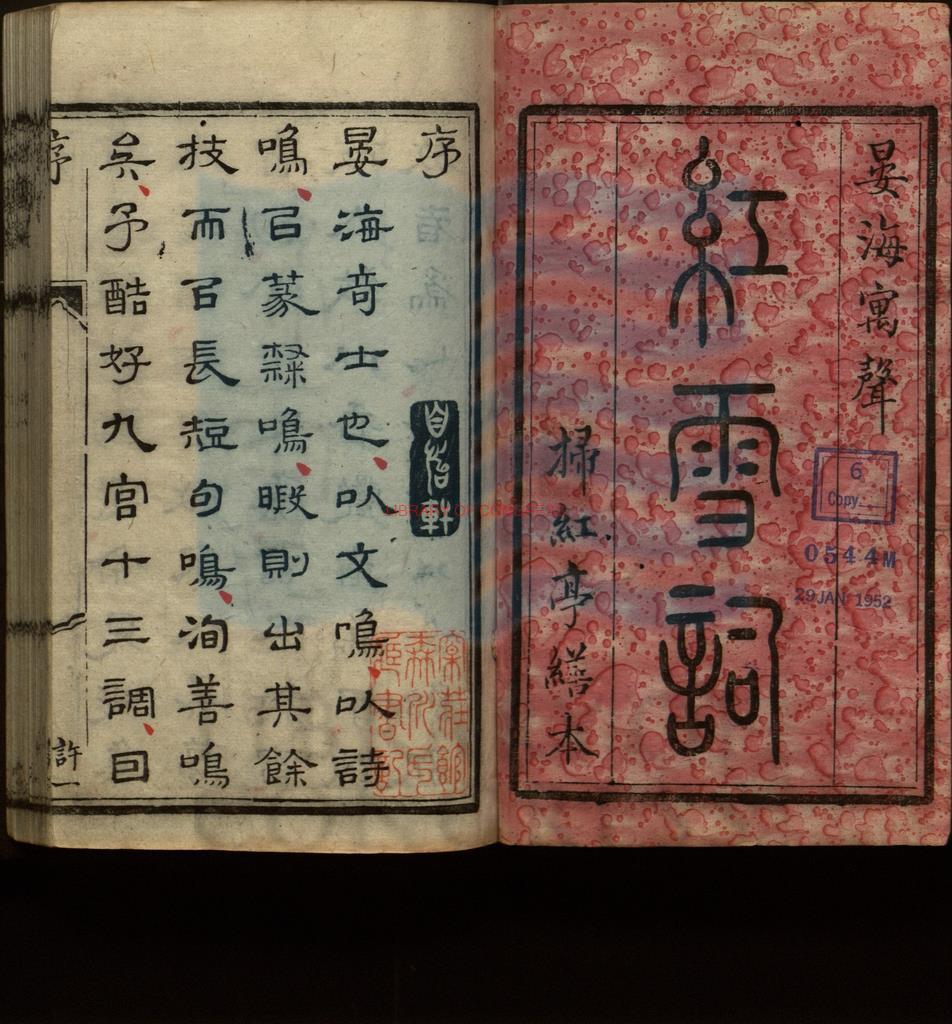 晏海寓聲
紅雪詞
掃紅亭繕本
6
Copy
0544M
29 JAN 1952
LIBRARY OF CONGRESS
序
晏海奇士也以文鳴以詩
鳴㠯篆隸鳴暇則出其餘
技而㠯長短句鳴洵善鳴
矣予酷好九宮十三調曰
序
許一